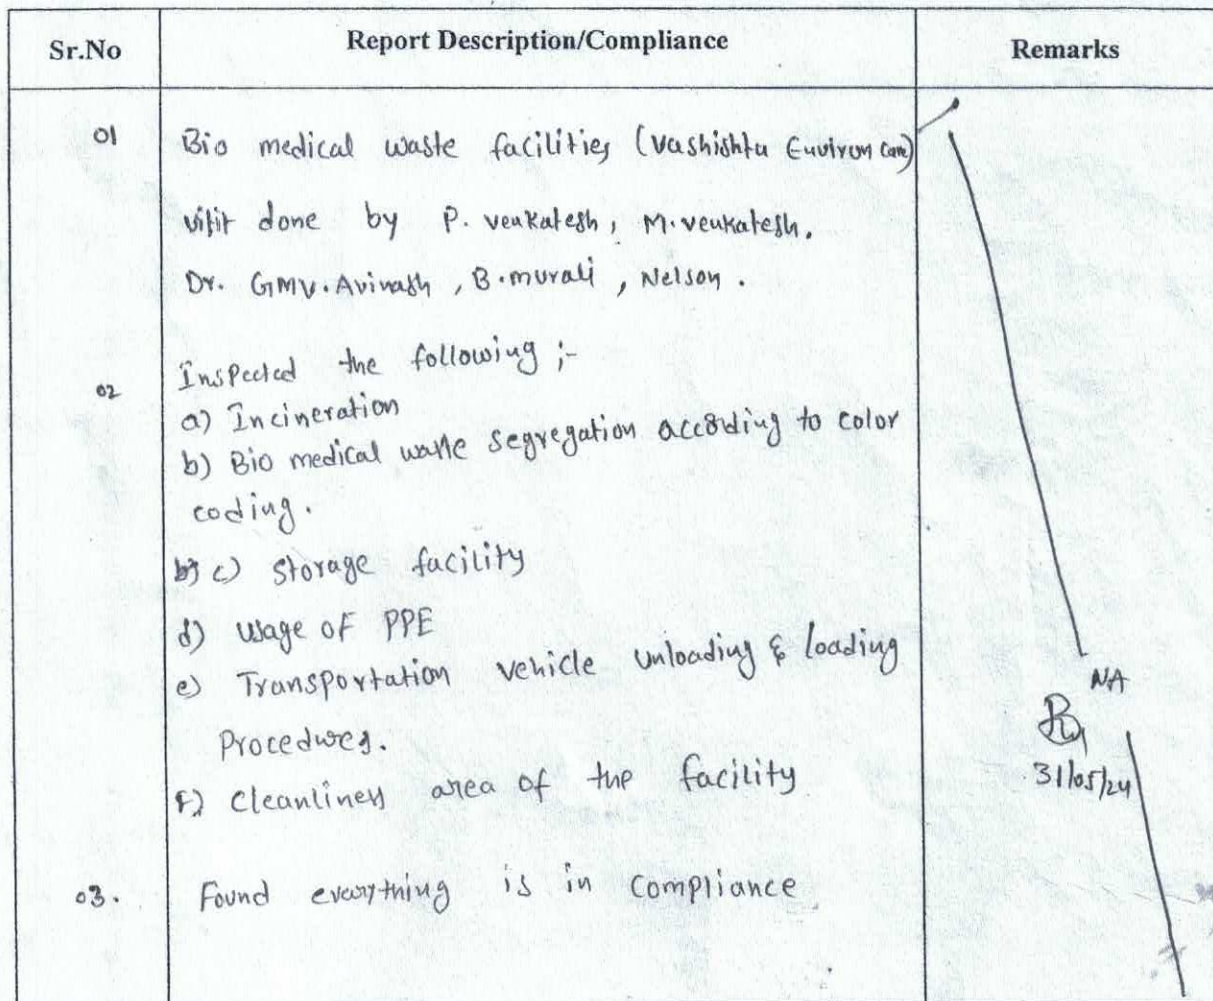 Sr.No Report Description/Compliance Remarks
01 Bio medical waste facilities (Vashishta Environ Care)
visit done by P. venkatesh, M. venkatesh,
Dr. GMV. Avinash, B. murali, Nelson.
02 Inspected the following ;-
a) Incineration
b) Bio medical waste segregation according to color
coding.
c) Storage facility
d) Usage of PPE
e) Transportation vehicle unloading & loading
NA
Procedures.
31/05/24
f) Cleanliness area of the facility
03. Found everything is in compliance